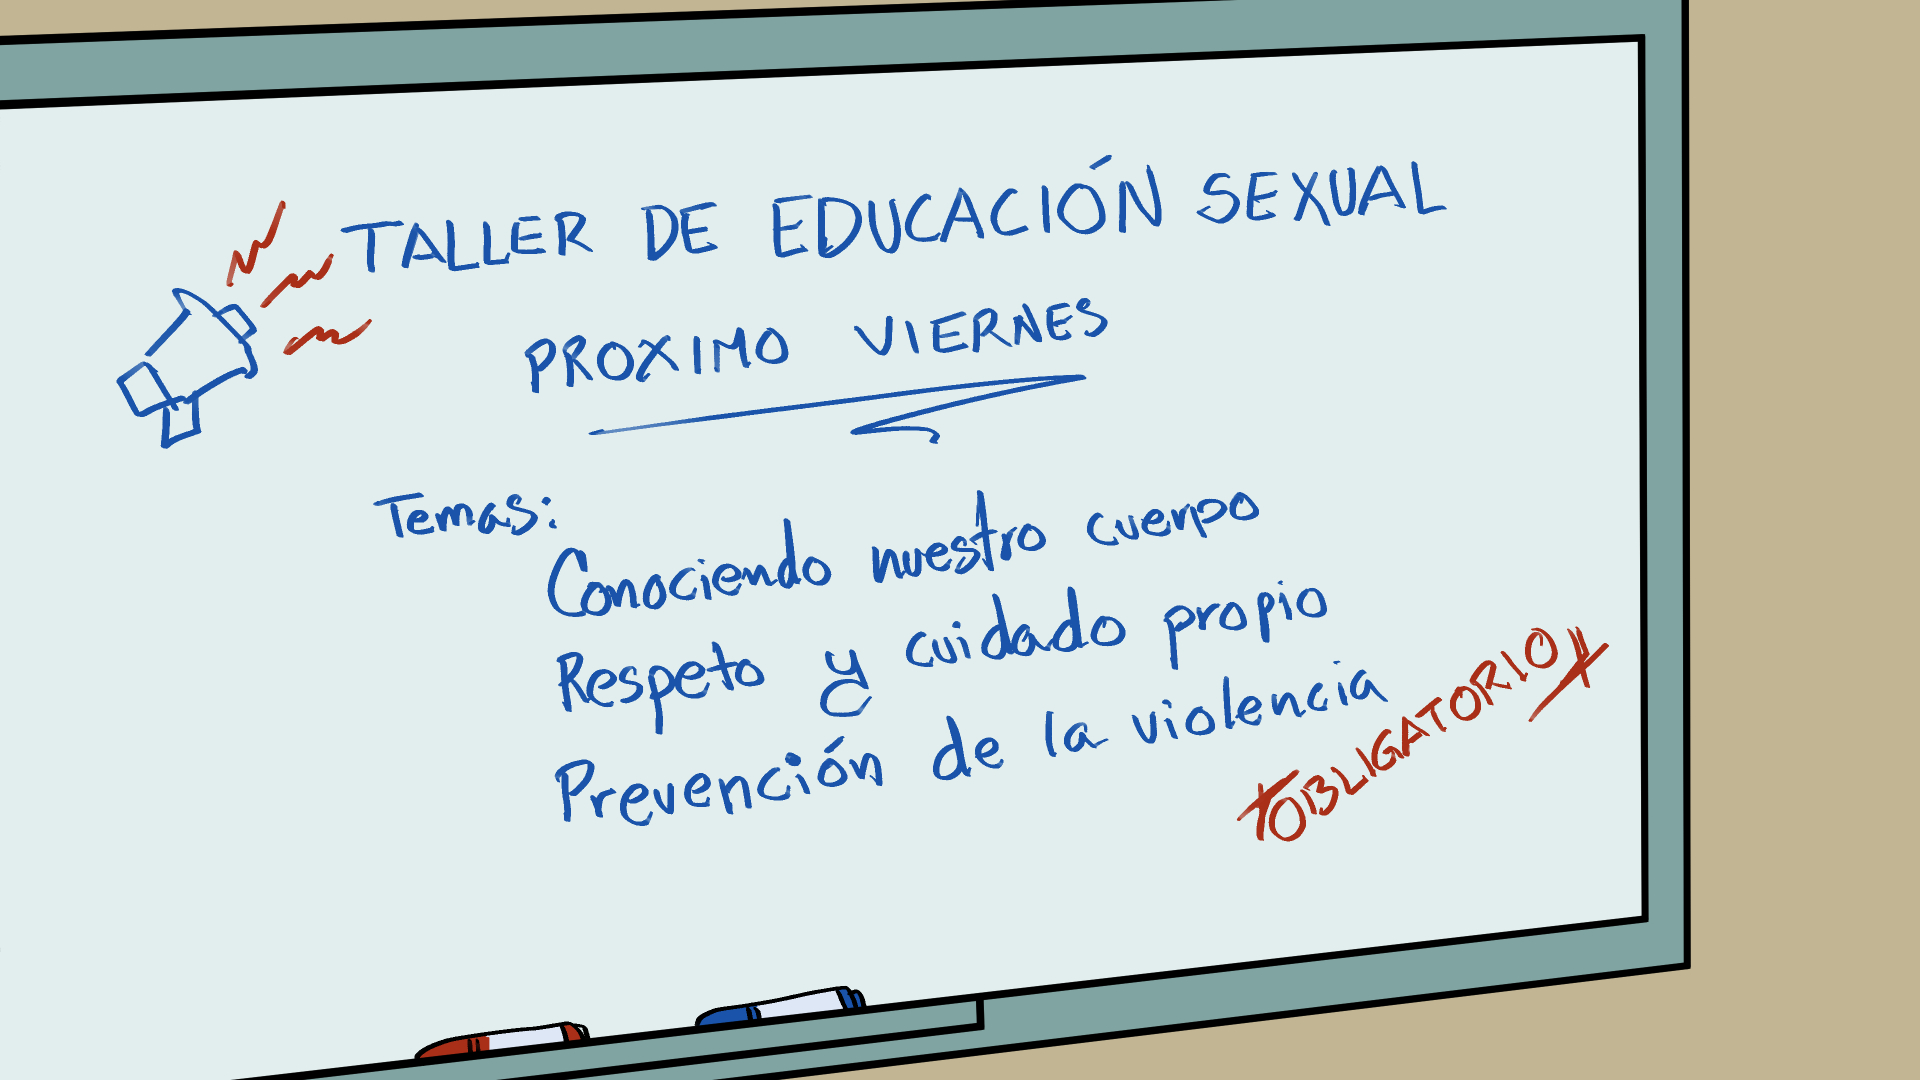 TALLER DE EDUCACIÓN SEXUAL
PROXIMO VIERNES
Temas:
Conociendo nuestro cuerpo
Respeto y cuidado propio
Prevención de la violencia
OBLIGATORIO